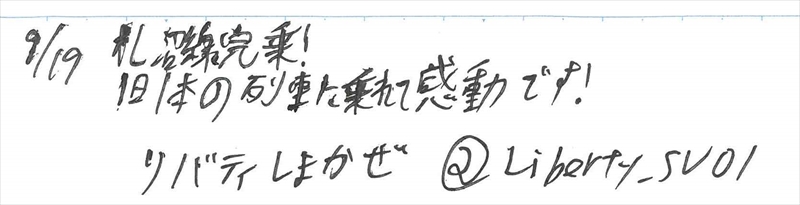 9/19 札沼線完乗!
1日1本の列車に乗れて感動です!
リバティしまかぜ @Liberty_SV01